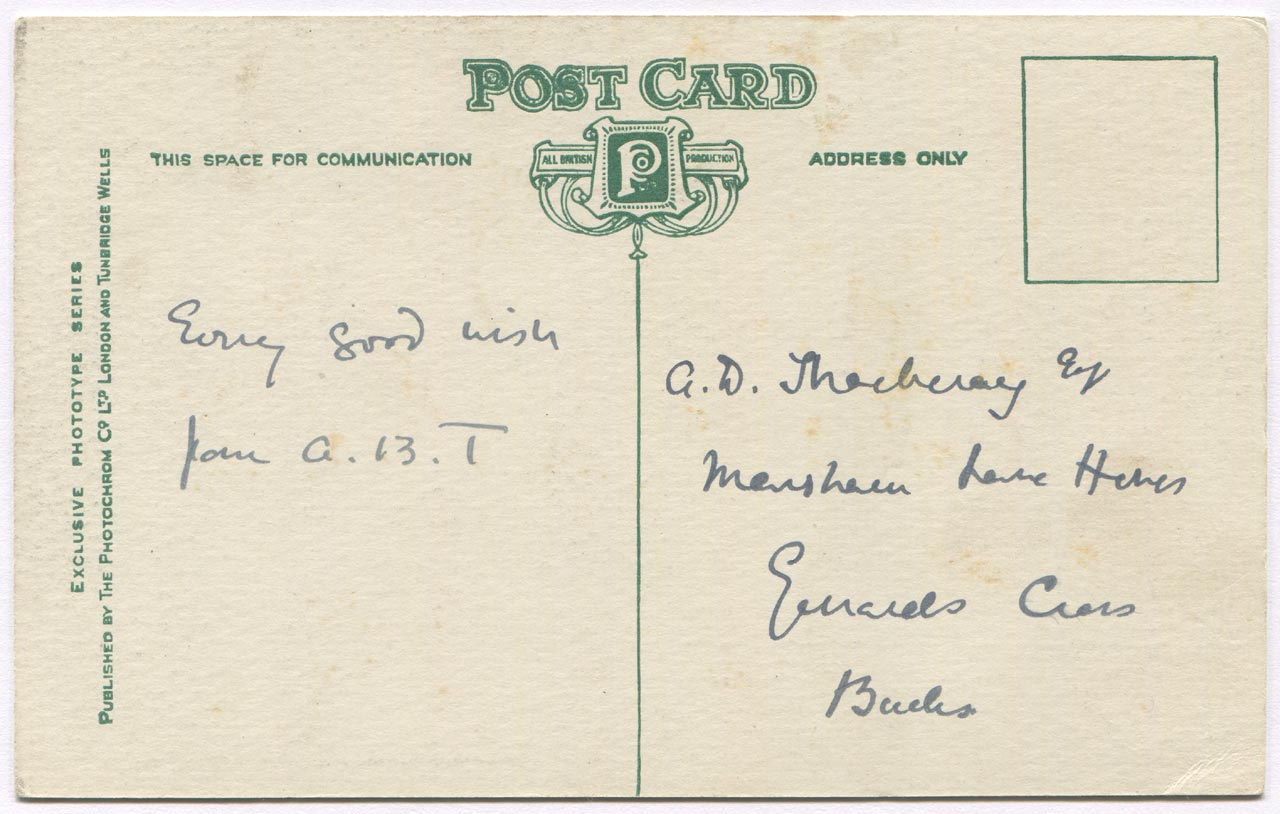 POST CARD
THIS SPACE FOR COMMUNICATION
ALL BRITISH P PRODUCTION
ADDRESS ONLY
EXCLUSIVE PHOTOTYPE SERIES
PUBLISHED BY THE PHOTOCHROM CO LTD LONDON AND TUNBRIDGE WELLS
Every good wish
from A.B.T
A.D. Thackeray Esq
Marsham Lane
Gerrards Cross
Bucks